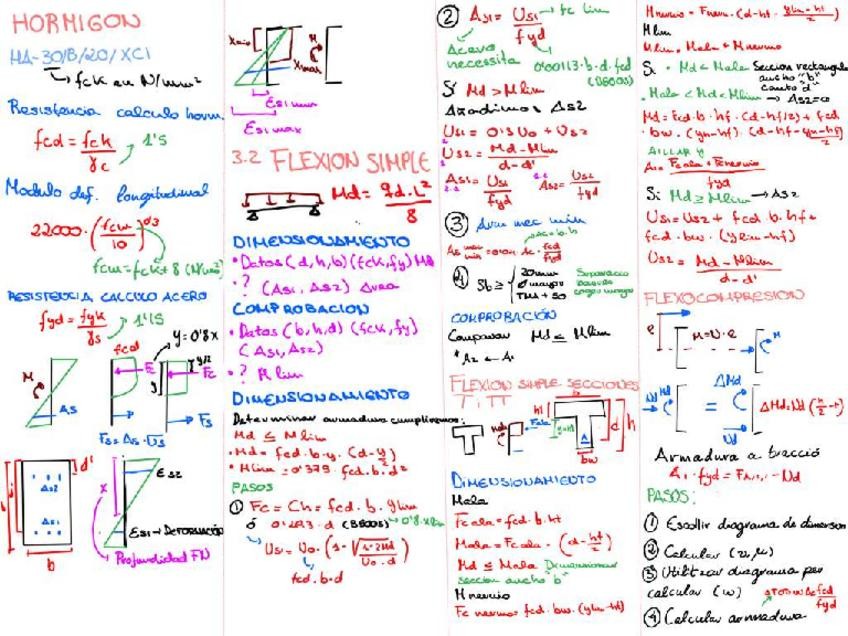 HORMIGON
HA-30/B/20/XC1
fck en N/mm²
Resistencia calculo horm.
fcd = fck/γc
1'5
Modulo def. longitudinal
22000 · (fcm/10)^0'3
fcm = fck + 8 (N/mm²)
RESISTENCIA CALCULO ACERO
fyd = fyk/γs
1'15
fcd
y = 0'8x
M
As
Fc
y
y/2
Fc
Fs
Fs = As · σs
d'
As2
As1
b
x
Es2
Es1 → DEFORMACIÓN
Profundidad FN
Xmin
Xmax
M
Es1 min
Es1 max
3.2 FLEXION SIMPLE
Md = qd · L²/8
DIMENSIONAMIENTO
• Datos (d, h, b) (fck, fy) Md
• ? (As1, As2)
COMPROBACION
• Datos (b, h, d) (fck, fy)
(As1, As2)
• ? M lim
DIMENSIONAMIENTO
Determinar armadura cumpliremos:
Md ≤ M lim
• Md = fcd · b · y · (d - y/2)
• M lim = 0'375 · fcd · b · d²
PASOS
① Fc = Ch = fcd · b · y lim
(B500S)
0'8 · x lim
Us1 = Uo · (1 - √(1 - 2Md/(Uo · d)))
fcd · b · d
② As1 = Us1/fyd
Acero necesita
(B500S)
Si Md > M lim
Añadimos As2
Us2 = (Md - Mlim)/(d - d')
As1 = Us1/fyd
As2 = Us2/fyd
③ Arm mec min
Ac = b · h
④ Sb ≥
20mm
ø mayor
Separacio
COMPROBACIÓN
Comparar Md ≤ M lim
FLEXION SIMPLE SECCIONES
T i TT
hf
d
h
bw
DIMENSIONAMIENTO
Mala
Fc ala = fcd · b · hf
Mala = Fc ala · (d - hf/2)
Md ≤ Mala Dimensionar
seccion ancho "b"
M nervio
Fc nervio = fcd · bw · (y lim - hf)
M nervio = F nerv · (d - hf - (y lim - hf)/2)
M lim
M lim = Mala + M nervio
Si • Md < Mala Seccion rectangular
ancho "b"
canto "d"
• Mala < Md < M lim → As2 = 0
Md = fcd · b · hf · (d - hf/2) + fcd
· bw · (yn - hf) · (d - hf - (yn - hf)/2)
AILLAR y
A1 = (Fc ala + Fc nervio)/fyd
Si Md ≥ M lim → As2
Us1 = Us2 + fcd · b · hf +
fcd · bw · (y lim - hf)
Us2 = (Md - Mlim)/(d - d')
FLEXOCOMPRESION
e
M = N · e
M
Nd
Md
=
ΔMd
Nd
ΔMd = Nd (h/2 - r)
Armadura a tracció
PASOS:
① Escollir diagrama de dimension
② Calcular (υ, μ)
③ Utilitzar diagrama per
calcular (ω)
④ Calcular armadura